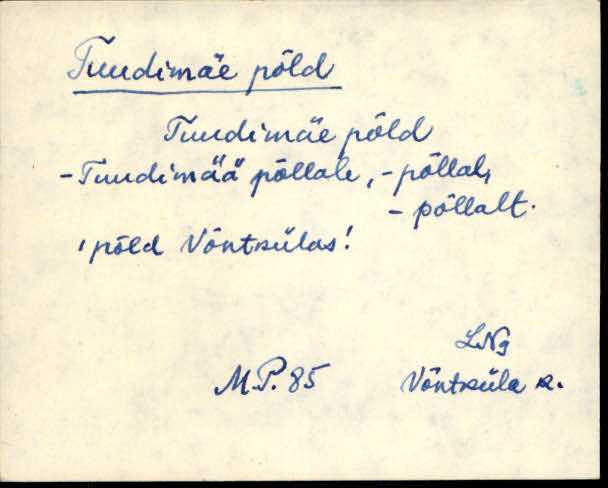 Tuudimäe põld
Tuudimäe põld
- Tuudimää põllale, - põllal,
- põllalt.
'põld Võntkülas!
LNg
M.P. 85 Võntküla k.